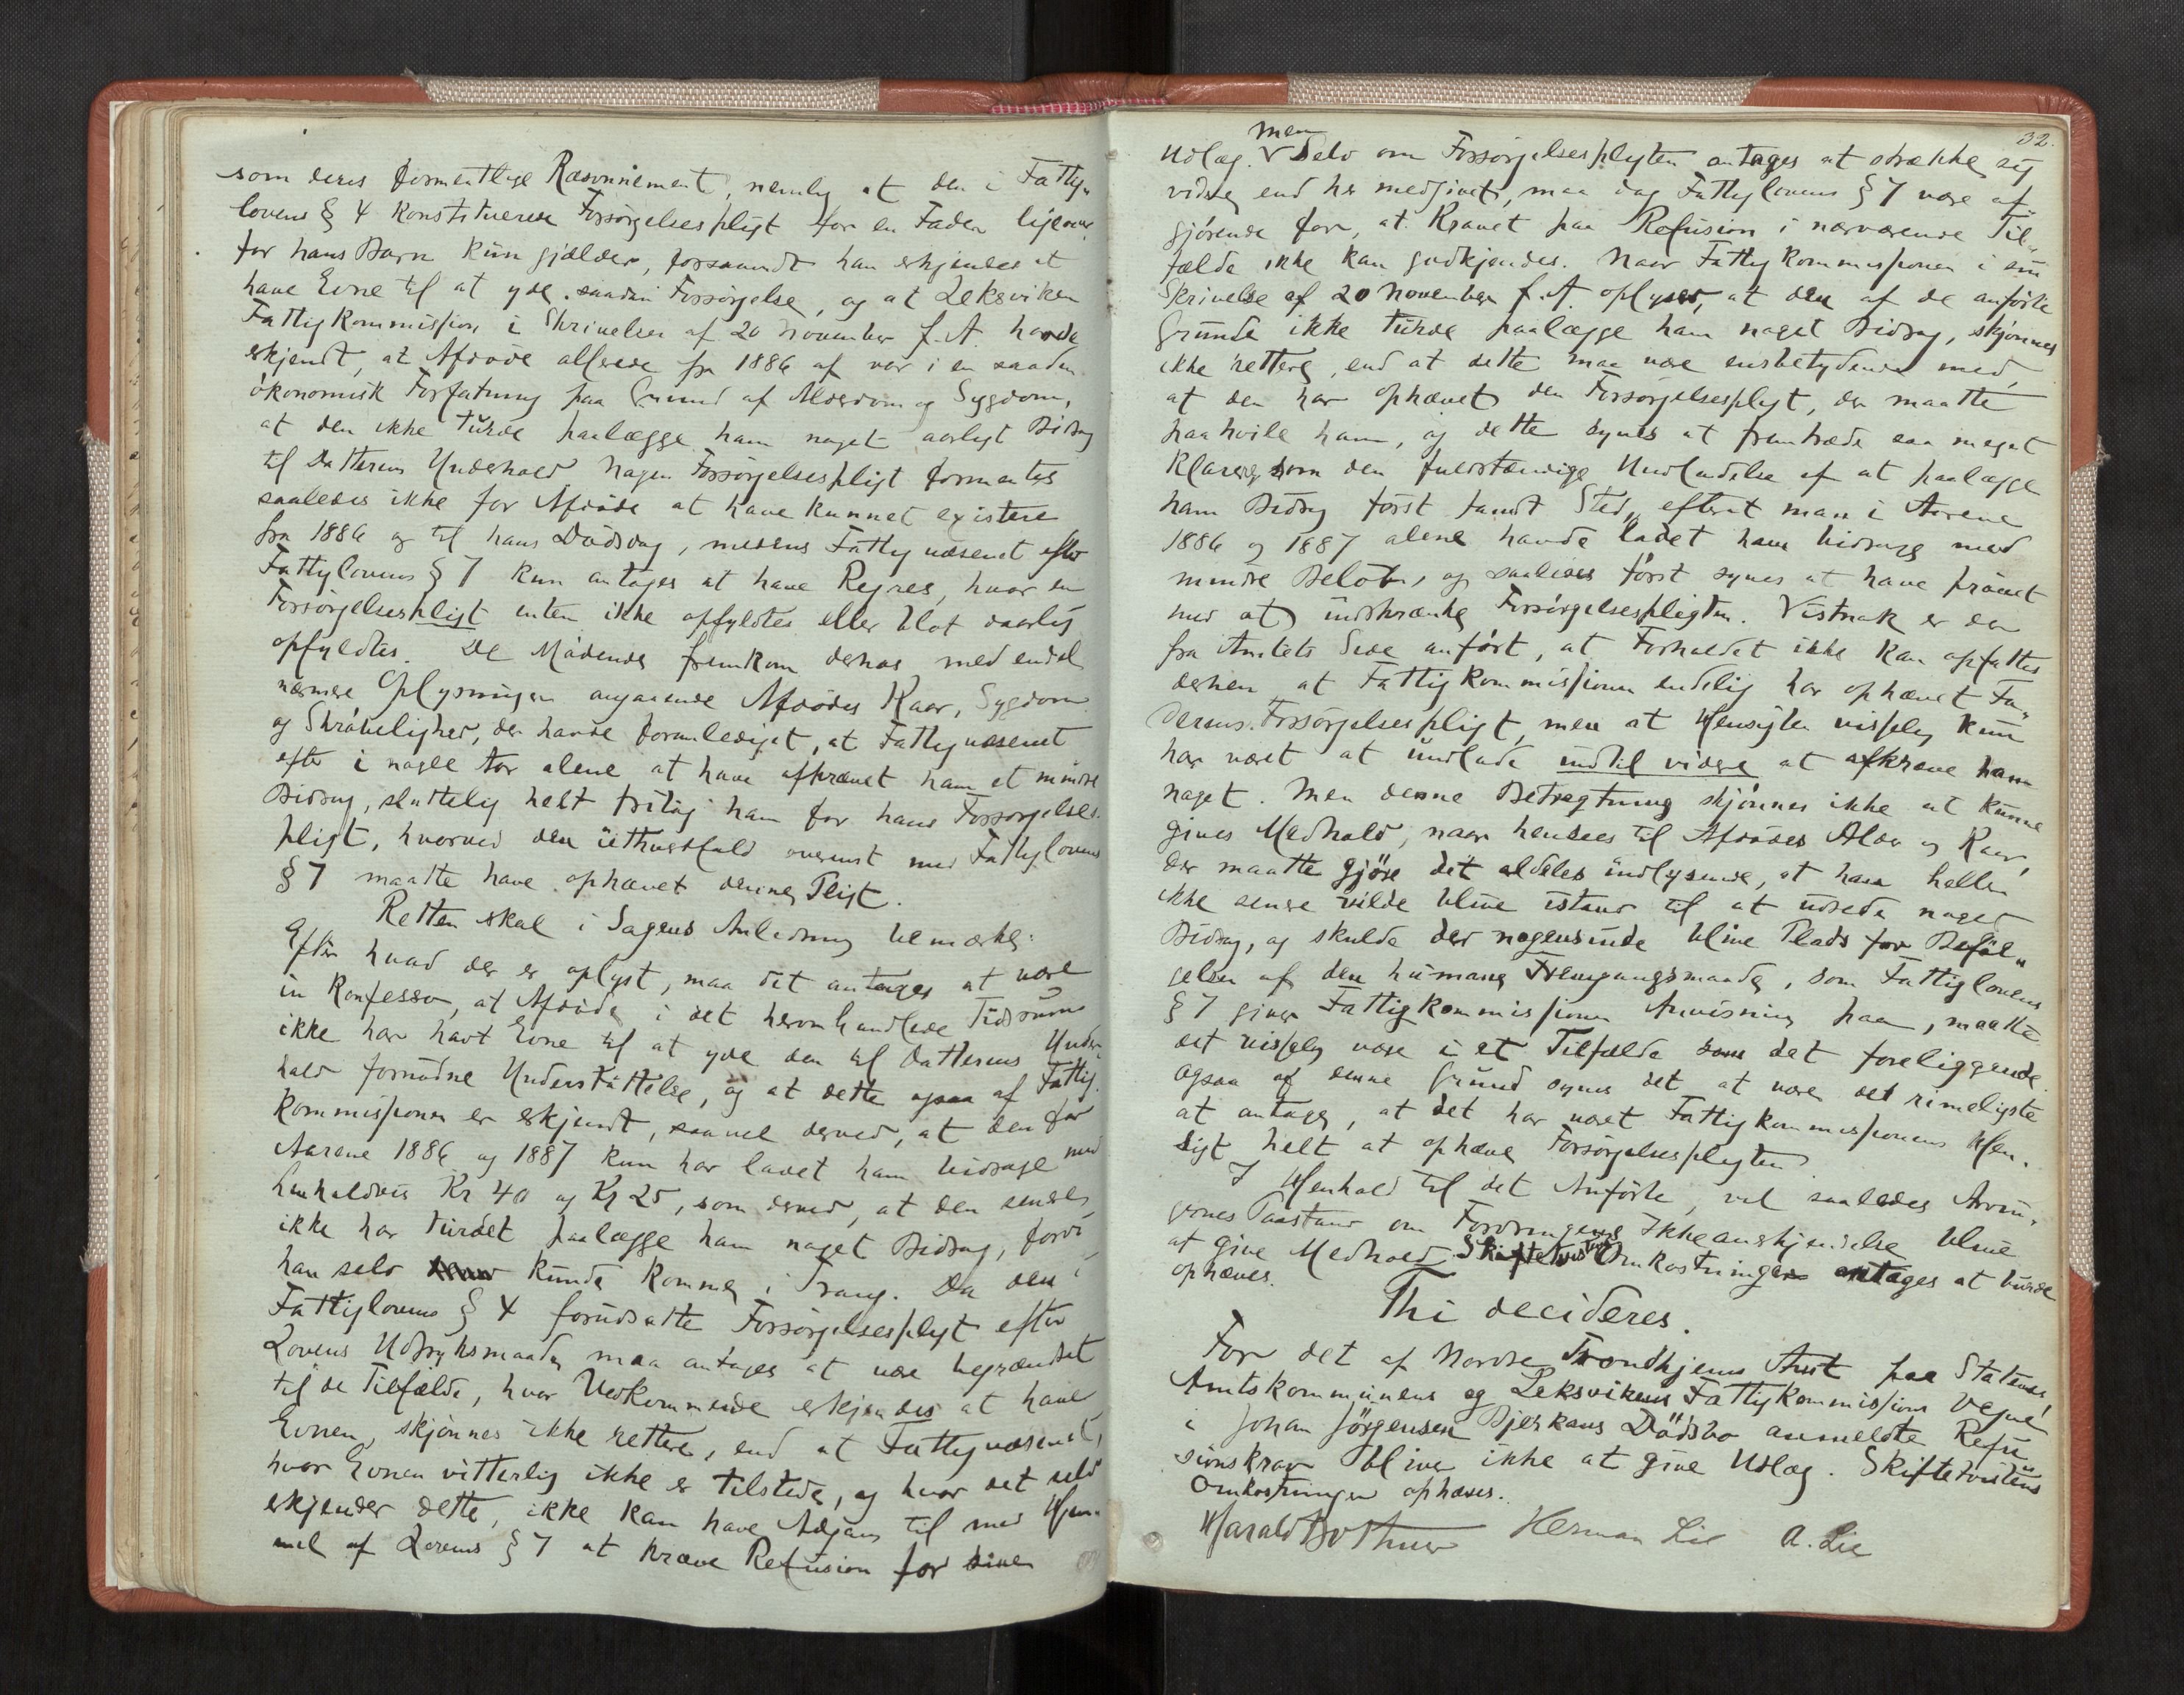 som deres formentlige Ræsonnement, nemlig at den i Fattig„
lovens § 4 konstituerede Forsörgelsespligt for en Fader ligeover„
for hans Barn kun gjælder, forsaavidt han erkjendes at
have Evne til at yde saadan Forsörgelse, og at Leksviken
Fattigkommission i Skrivelse af 20 November f. A. havde
erkjendt, at Afdöde allerede fra 1886 af var i en saadan
ökonomisk Forfatning paa Grund af Alderdom og Sygdom,
at den ikke turde paalægge ham noget aarligt Bidrag
til Datterens Underhold. Nogen Forsörgelsespligt formentes
saaledes ikke for Afdöde at have kunnet existere
fra 1886 og til hans Dödsdag, medens Fattigvæsenet efter
Fattiglovens § 7 kun antages at have Regres, hvor en
Forsörgelsespligt enten ikke opfyldtes eller blot daarlig
opfyldtes. De Mödende fremkom derhos med endel
nærmere Oplysninger angaaende Afdödes Kaar, Sygdom
og Skröbelighed, der havde foranlediget, at Fattigvæsenet
efter i nogle Aar alene at have affrævet ham et mindre
Bidrag, sluttelig helt fritog ham for hans Forsörgelses„
pligt, hvorved den iethvertfald overenst med Fattiglovens
§ 7 maatte have ophævet denne Pligt.
Retten skal i Sagens Anledning bemærke:
Efter hvad der er oplyst, maa det antages at være
in Konfesso, at Afdöde i det heromhandlede Tidsrum
ikke har havt Evne til at yde den til Datterens Under„
hold fornödne Understöttelse, og at dette ogsaa af Fattig„
kommissionen er erkjendt, saavel derved, at den for
Aarene 1886 og 1887 kun har ladet ham bidrage med
henholdsvis Kr 40 og Kr 25, som derved, at den senere
ikke har turdet paalægge ham noget Bidrag, fordi
han selv kunde komme i Trang. Da den i
Fattiglovens § 4 forudsatte Forsörgelsespligt efter
Lovens Udtryksmaade maa antages at være begrændset
til de Tilfælde, hvor Vedkommende erkjendes at have
Evnen, skjönnes ikke rettere, end at Fattigvæsenet,
hvor Evnen vitterlig ikke er tilstede, og hvor det selv
erkjender dette, ikke kan have Adgang til med Hjem„
mel af Lovens § 7 at kræve Refusion for sine
32.
Udlæg. men Selv om Forsörgelsespligten antages at strække sig
videre, end her medgivet, maa dog Fattiglovens § 7 være af„
gjörende for, at Kravet paa Refusion i nærværende Til„
fælde ikke kan godkjendes. Naar Fattigkommissionen i sin
Skrivelse af 20 November f. A. oplyser, at den af de anförte
Grunde ikke turde paalægge ham noget Bidrag, skjönnes
ikke rettere, end at dette maa være ensbetydende med,
at den har ophævet den Forsörgelsespligt, der maatte
paahvile ham, og dette synes at fremtræde saa meget
klarere, som den fuldstændige Undladelse af at paalægge
ham Bidrag först fandt Sted, efterat man i Aarene
1886 og 1887 alene havde ladet ham bidrage med
mindre Belöb, og saaledes först synes at have prövet
med at indskrænke Forsörgelsespligten. Vistnok er der
fra Amtets Side anfört, at Forholdet ikke kan opfattes
derhen, at Fattigkommissionen endelig har ophævet Fa„
derens Forsörgelsespligt, men at Hensigten visselig kun
har været at undlade indtil videre at afkræve ham
noget. Men denne Betragtning skjönnes ikke at kunne
gives Medhold, naar hensees til Afdödes Alder og Kaar,
der maatte gjöre det aldeles indlysende, at han heller
ikke senere vilde blive istand til at udrede noget
Bidrag, og skulde der nogensinde blive Plads for Beföl„
gelsen af den humane Fremgangsmaade, som Fattiglovens
§ 7 giver Fattigkommissionen Anvisning paa, maatte
det visselig være i et Tilfælde som det foreliggende.
Ogsaa af denne Grund synes det at være det rimeligste
at antage, at det har været Fattigkommissionens Hen„
sigt helt at ophæve Forsörgelsespligten.
I Henhold til det Anförte vil saaledes Arvin„
gernes Paastand om Fordringens Ikkeanerkjendelse blive
at give Medhold. Skiftetvistens Omkostninger antages at burde
ophæves.
Thi decideres.
For det af Nordre Trondhjems Amt paa Statens,
Amtskommunens og Leksvikens Fattigkommissions Vegne
i Johan Jörgensen Bjerkans Dödsbo anmeldte Refu„
sionskrav bliver ikke at give Udlæg. Skiftetvistens
Omkostninger ophæves.
Harald Bothner Herman Lie A. Lie